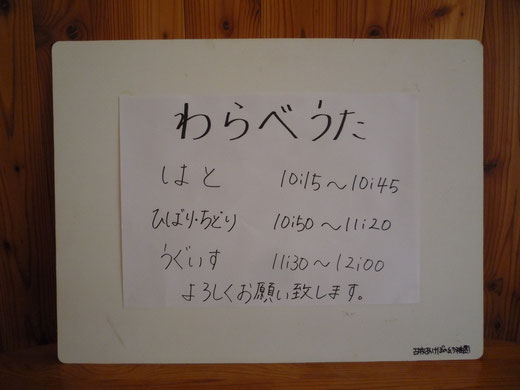 わらべうた
はと 10:15～10:45
ひばり・ちどり 10:50～11:20
うぐいす 11:30～12:00
よろしくお願い致します。